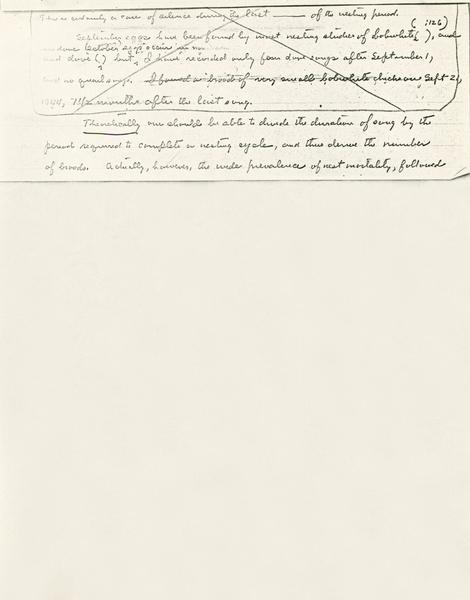 There is certainly a case of silence during the last —— of the nesting period.
( :126)
September eggs have been found by most nesting studies of bobwhite ( ), and
some October eggs occur in
and dove ( ) but, I have recorded only four dove songs after September 1,
and no quail songs. I found a brood of very small bobwhite chicks on Sept 21,
1944, 1 1/2 months after the last song.
Theoretically one should be able to divide the duration of song by the
period required to complete a nesting cycle, and thus derive the number
of broods. Actually, however, the wide prevalence of nest mortality, followed